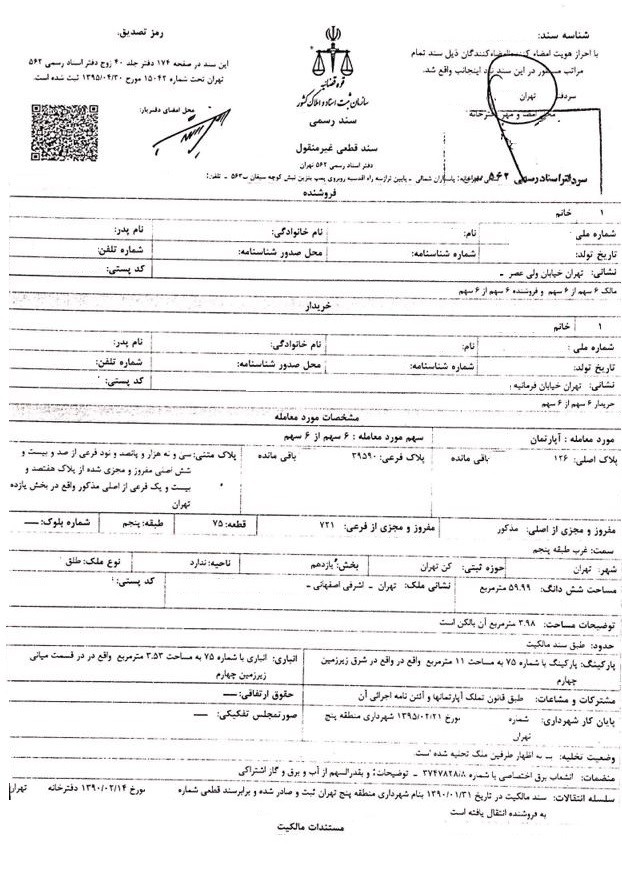 شناسه سند:
با احراز هویت امضاء کننده/امضاءکنندگان ذیل سند تمام
مراتب مسطور در این سند نزد اینجانب واقع شد.
سردفتر تهران
محل امضا و مهر دفترخانه
سردفتر اسناد رسمی ۵۶۲
قوه قضائیه
سازمان ثبت اسناد و املاک کشور
سند رسمی
سند قطعی غیرمنقول
دفتر اسناد رسمی ۵۶۲ تهران
پاسداران شمالی - پایین ترازسه راه اقدسیه روبروی پمپ بنزین نبش کوچه سیفان پ۵۶۳ - تلفن:
رمز تصدیق:
این سند در صفحه ۱۷۴ دفتر جلد ۴۰ زوج دفتر اسناد رسمی ۵۶۲
تهران تحت شماره ۱۵۰۴۲ مورخ ۱۳۹۵/۰۴/۳۰ ثبت شده است.
محل امضای دفتریار:
فروشنده
۱ خانم
شماره ملی نام: نام خانوادگی: نام پدر:
تاریخ تولد: شماره شناسنامه: محل صدور شناسنامه: شماره تلفن:
نشانی: تهران خیابان ولی عصر - کد پستی:
مالک ۶ سهم از ۶ سهم و فروشنده ۶ سهم از ۶ سهم
خریدار
۱ خانم
شماره ملی : نام: نام خانوادگی: نام پدر:
تاریخ تولد: شماره شناسنامه: محل صدور شناسنامه: شماره تلفن:
نشانی: تهران خیابان فرمانیه کد پستی:
خریدار ۶ سهم از ۶ سهم
مشخصات مورد معامله
مورد معامله : آپارتمان سهم مورد معامله : ۶ سهم از ۶ سهم
پلاک اصلی: ۱۲۶ باقی مانده پلاک فرعی: ۳۹۵۹۰ باقی مانده پلاک متنی: سی و نه هزار و پانصد و نود فرعی از صد و بیست و
شش اصلی مفروز و مجزی شده از پلاک هفتصد و
بیست و یک فرعی از اصلی مذکور واقع در بخش یازده
تهران
مفروز و مجزی از اصلی: مذکور مفروز و مجزی از فرعی: ۷۲۱ قطعه: ۷۵ طبقه: پنجم شماره بلوک: —
سمت: غرب طبقه پنجم
شهر: تهران حوزه ثبتی: کن تهران بخش: یازدهم ناحیه: ندارد نوع ملک: طلق
مساحت شش دانگ: ۵۹.۹۹ مترمربع نشانی ملک: تهران - اشرفی اصفهانی - کد پستی:
توضیحات مساحت: ۳.۹۸ مترمربع آن بالکن است
حدود: طبق سند مالکیت
پارکینگ: پارکینگ با شماره ۷۵ به مساحت ۱۱ مترمربع واقع در واقع در شرق زیرزمین انباری: انباری با شماره ۷۵ به مساحت ۳.۵۳ مترمربع واقع در در قسمت میانی
چهارم زیرزمین چهارم
مشترکات و مشاعات: طبق قانون تملک آپارتمانها و آئین نامه اجرائی آن حقوق ارتفاقی: —
پایان کار شهرداری: شماره مورخ ۱۳۹۵/۰۲/۲۱ شهرداری منطقه پنج صورتمجلس تفکیکی: —
تهران
وضعیت تخلیه: به اظهار طرفین ملک تخلیه شده است.
منضمات: انشعاب برق اختصاصی با شماره ۳۷۴۷۸۲۸/۸ - توضیحات: و بقدرالسهم از آب و برق و گاز اشتراکی
سلسله انتقالات: سند مالکیت در تاریخ ۱۳۹۰/۰۱/۳۱ بنام شهرداری منطقه پنج تهران ثبت و صادر شده و برابرسند قطعی شماره مورخ ۱۳۹۰/۰۲/۱۴ دفترخانه تهران
به فروشنده انتقال یافته است
مستندات مالکیت